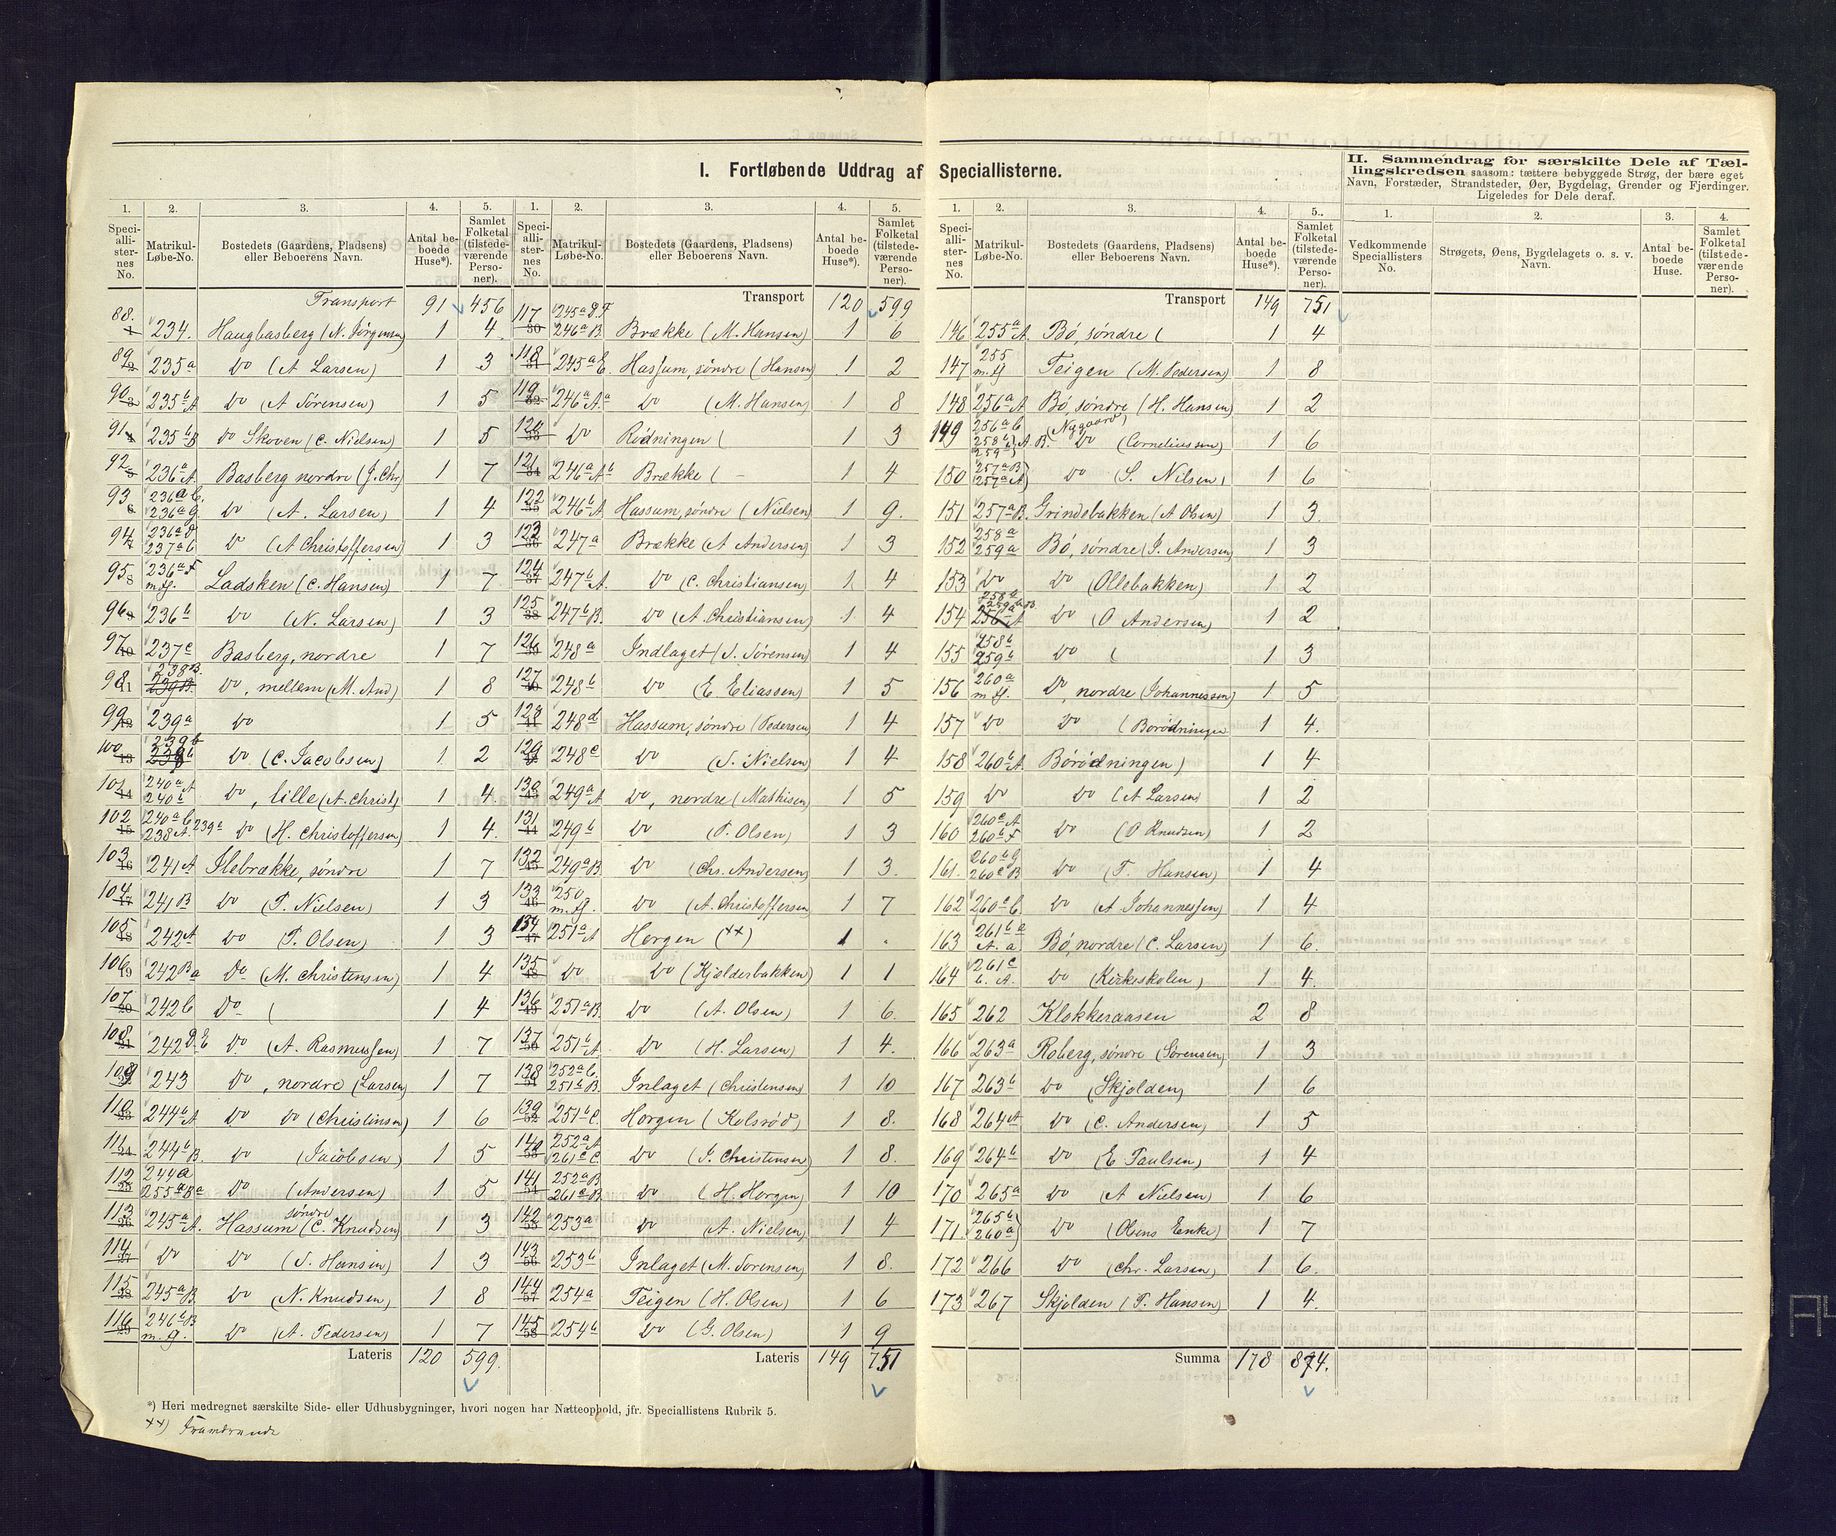 I. Fortløbende Uddrag af Speciallisterne.
II. Sammendrag for særskilte Dele af Tællingskredsen saasom: tættere bebyggede Strøg, der bære eget
Navn, Forstæder, Strandsteder, Øer, Bygdelag, Grender og Fjerdinger.
Ligeledes for Dele deraf.
1. 2. 3. 4. 5.
Speciallisternes No. Matrikul-Løbe-No. Bostedets (Gaardens, Pladsens) eller Beboerens Navn. Antal beboede Huse*). Samlet Folketal (tilstedeværende Personer).
Transport 91 456
88. 234. Haugbasberg (N. Jørgensen) 1 4
89 235a Do (A Larsen) 1 3
90 235b A Do (A Sørensen) 1 5
91 235b B Do Skoven (C. Nielsen) 1 5
92 236a A. Basberg nordre (J. Chr) 1 7
93 236a C. 236a G. Do (A. Larsen) 1 4
94 236a D 237a b Do (A Christoffersen) 1 3
95 236a F m. fl. Ladsken (C. Hansen) 1 7
96 236b Do (N. Larsen) 1 3
97 237c Basberg, nordre 1 7
98 238B. Do, mellem (M. And) 1 8
99 239a Do 1 5
100 239b Do (C. Jacobsen) 1 2
101 240a A 240b Do, lille (A. Christ) 1 4.
102 240a C 238A. 239a Do (H. Christoffersen) 1 4.
103 241A Ilebrække, søndre 1 7
104 241B Do (T. Nielsen) 1 3
105 242A Do (T. Olsen) 1 3
106 242Ba Do (M. Christensen) 1 4
107 242C Do ( 1 4
108 242D.E Do (A. Rasmussen) 1 7
109 243 Do, nordre (Larsen) 1 7
110 244b A Do Do (Christensen) 1 6
111 244b B. Do (Jacobsen) 1 5
112 244a 255a Ba Do (Andersen) 1 5
113 245a A. Hassum søndre (C. Knudsen) 1 3
114 Do Do (S. Hansen) 1 3
115 245a B. Do (N. Knudsen) 1 8
116 246b B m. fl. Do (A. Pedersen) 1 7
Lateris 120 599.
1. 2. 3. 4. 5.
Speciallisternes No. Matrikul-Løbe-No. Bostedets (Gaardens, Pladsens) eller Beboerens Navn. Antal beboede Huse*). Samlet Folketal (tilstedeværende Personer).
Transport 120 599
117 246a B Brække (M. Hansen) 1 6
118 245a E. Hassum, søndre (Hansen) 1 2
119 246a Aa Do (M. Hansen) 1 8
120 Do Rødningen ( 1 3
121 246a Ab Brække ( - 1 4
122 246b A. Hassum, søndre (Nielsen) 1 9.
123 247a Brække (A Andersen) 1 3
124 247b A. Do (C. Christiansen) 1 4
125 247b B. Do (A. Christiansen) 1 4
126 248a Indlaget (S. Sørensen) 1 4
127 248b Do (E. Eliassen) 1 5
128 248d Hassum, søndre (Pedersen) 1 4
129 248c Do (S. Nielsen) 1 4
130 249a A Do, nordre (Mathisen) 1 5
131 249b Do (T. Olsen) 1 3
132 249a B Do (Chr. Andersen) 1 3.
133 250 m. fl. Do (A. Christoffersen) 1 7
134 251a A Horgen (××) 1 "
135 Do Do (Kjolderbakken) 1 1
136 251a B. Do (A. Olsen) 1 6.
137 251b A. Do (H. Larsen) 1 4.
138 252a C. 251b B. Inlaget (Christensen) 1 10
139 251b C. Horgen (Kolsrød) 1 8.
140 252a A 261c C. Do (J. Christensen) 1 8
141 252a B 261a B Do (H. Horgen) 1 10
142 253a Do (A. Nielsen) 1 4
143 253b Inlaget (M. Sørensen) 1 8.
144 254a Teigen (H. Olsen) 1 6
145 254b Do (G. Olsen) 1 9
Lateris 149 751
1. 2. 3. 4. 5.
Speciallisternes No. Matrikul-Løbe-No. Bostedets (Gaardens, Pladsens) eller Beboerens Navn. Antal beboede Huse*). Samlet Folketal (tilstedeværende Personer).
Transport 149 751
146 255a A. Bø, søndre ( 1 4
147 255 m. fl. Teigen (M. Pedersen) 1 8
148 256a A Bø, søndre (H. Hansen) 1 2
149 256a C 258b A. B. 259b Do (Nygaard) (Corneliussen) 1 6
150 257a B 257a A Do (S. Nilsen) 1 6
151 257a B. Grindebakken (A Olsen) 1 3.
152 258a 259a Bø, søndre (J. Andersen) 1 3
153 Do Do (Ollebakken) 1 2
154 258a Do (O Andersen) 1 2
155 258b 259b Do ( 1 3
156 260a m. fl. Do, nordre (Johannessen) 1 5
157 Do Do (Borødningen 1 4.
158 260b A. Børødningen) 1 4
159 Do Do (A Larsen) 1 2
160 260c A 260b F Do (O Knudsen) 1 2
161. 260b G 260c B Do (T. Hansen) 1 4
162 260c C. Do (A Johannessen) 1 4
163 261b a A. a Bø, nordre (C. Larsen) 1 6.
164 261c b. A. Do (Kirkeskolen) 1 4.
165 262 Klokkeraasen 2 8
166 263a Roberg, søndre (Sørensen) 1 3
167 263b Do (Skjolden) 1 6
168 264a Do (C. Andersen) 1 5
169 264b Do (E Paulsen) 1 4
170 265a Do (A Nielsen) 1 6
171. 265b 260a Do (Olsens Enke) 1 7
172 266 Do (Chr. Larsen) 1 6.
173 267 Skjolden (T. Hansen) 1 4.
Summa 178 874.
1. 2. 3. 4.
Vedkommende Speciallisters No. Strøgets, Øens, Bygdelagets o. s. v. Navn. Antal beboede Huse. Samlet Folketal (tilstedeværende Personer).
*) Heri medregnet særskilte Side- eller Udhusbygninger, hvori nogen har Natteophold, jfr. Speciallistens Rubrik 5.